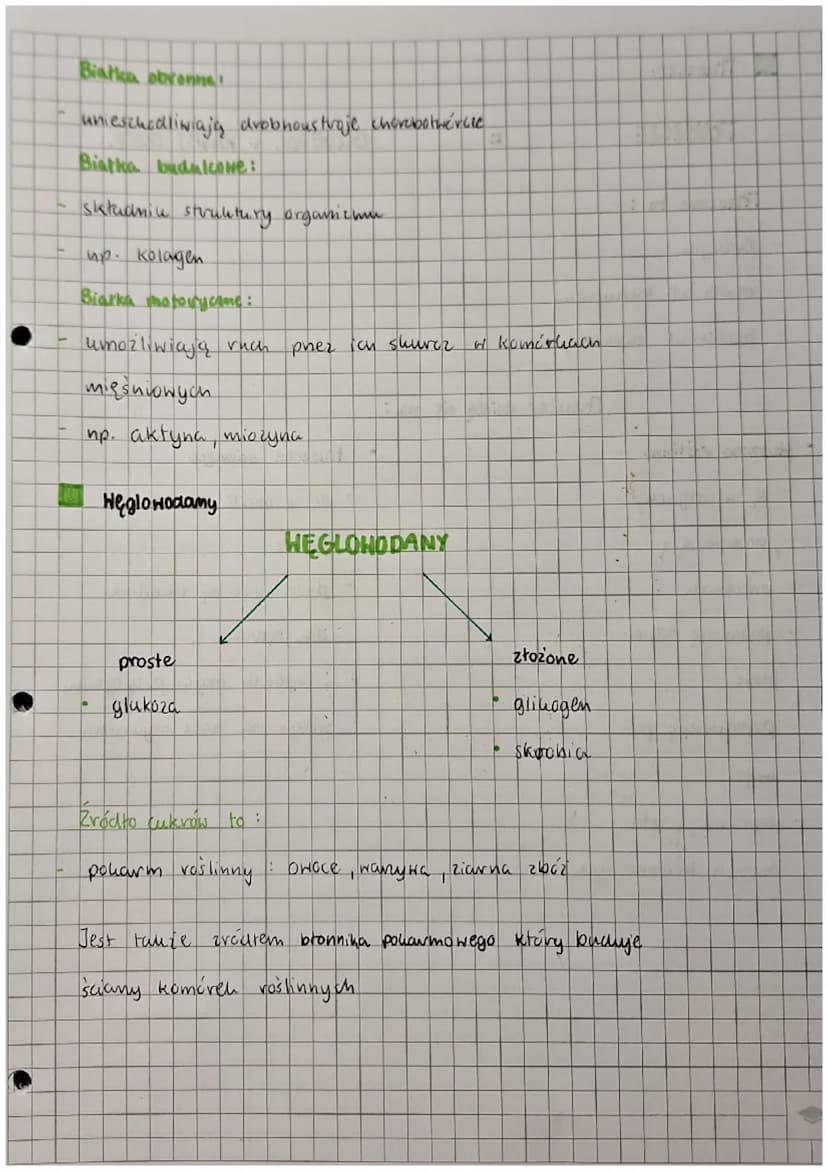 Białka obronne:
- unieszkodliwiają drobnoustroje chorobotwórcze
Białka budulcowe:
- składniki struktury organizmu
- np. kolagen
Białka motoryczne:
- umożliwiają ruch przez ich skurcz w komórkach
mięśniowych
- np. aktyna, miozyna
Węglowodany
WĘGLOWODANY
proste złożone
• glukoza • glikogen
• skrobia
Źródło cukrów to:
- pokarm roślinny: owoce, warzywa, ziarna zbóż
Jest także źródłem błonnika pokarmowego który buduje
ściany komórek roślinnych